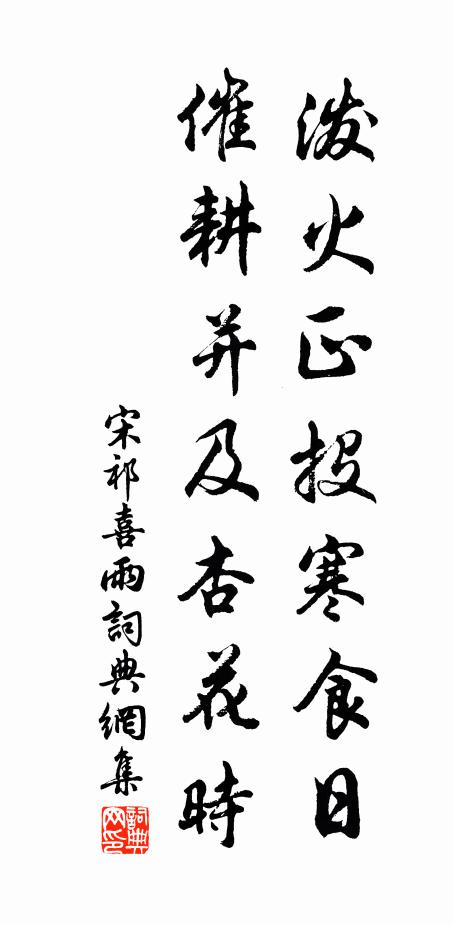 泼火正投寒食日
催耕并及杏花時
宋祁喜雨詞典網集
詞典網印